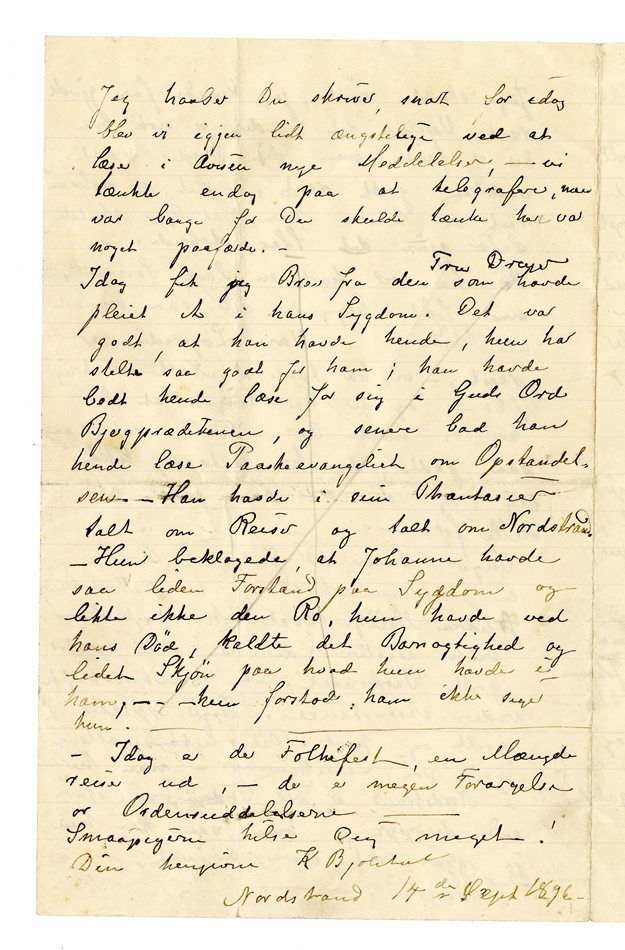 Jeg haaber Du skriver snart for idag
blev vi igjen lidt ængstelige ved at
læse i Avisen nye Meddelelser, — vi
tænkte endog paa at telegrafere, men
var bange for Du skulde tænke her var
noget paafærde. —
Idag fik jeg Brev fra den Fru Dreyer som havde
pleiet i hans Sygdom. Det var
godt, at han havde hende, hun har
stelt saa godt for ham; han havde
bedt hende læse for sig i Guds Ord
Bjergprædikenen, og senere bad han
hende læse Paaskeevangeliet om Opstandel-
sen. — Han havde i sine Phantasier
talt om Reiser og talt om Nordstrand.
— Hun beklagede, at Johanne havde
saa liden Forstand paa Sygdom og
likte ikke den Ro, hun havde ved
hans Død, kaldte det Barnagtighed og
lidet Skjøn paa hvad hun havde i
ham, — — — hun forstod ham ikke siger
hun.
— Idag er de Folkefest, en Mængde
reise ud, — de er megen Forargelse
or Ordensuddelelserne
Smaapigerne hilse Dig meget!
Din hengivne K
Nordstrand 14de Sept 1896 —